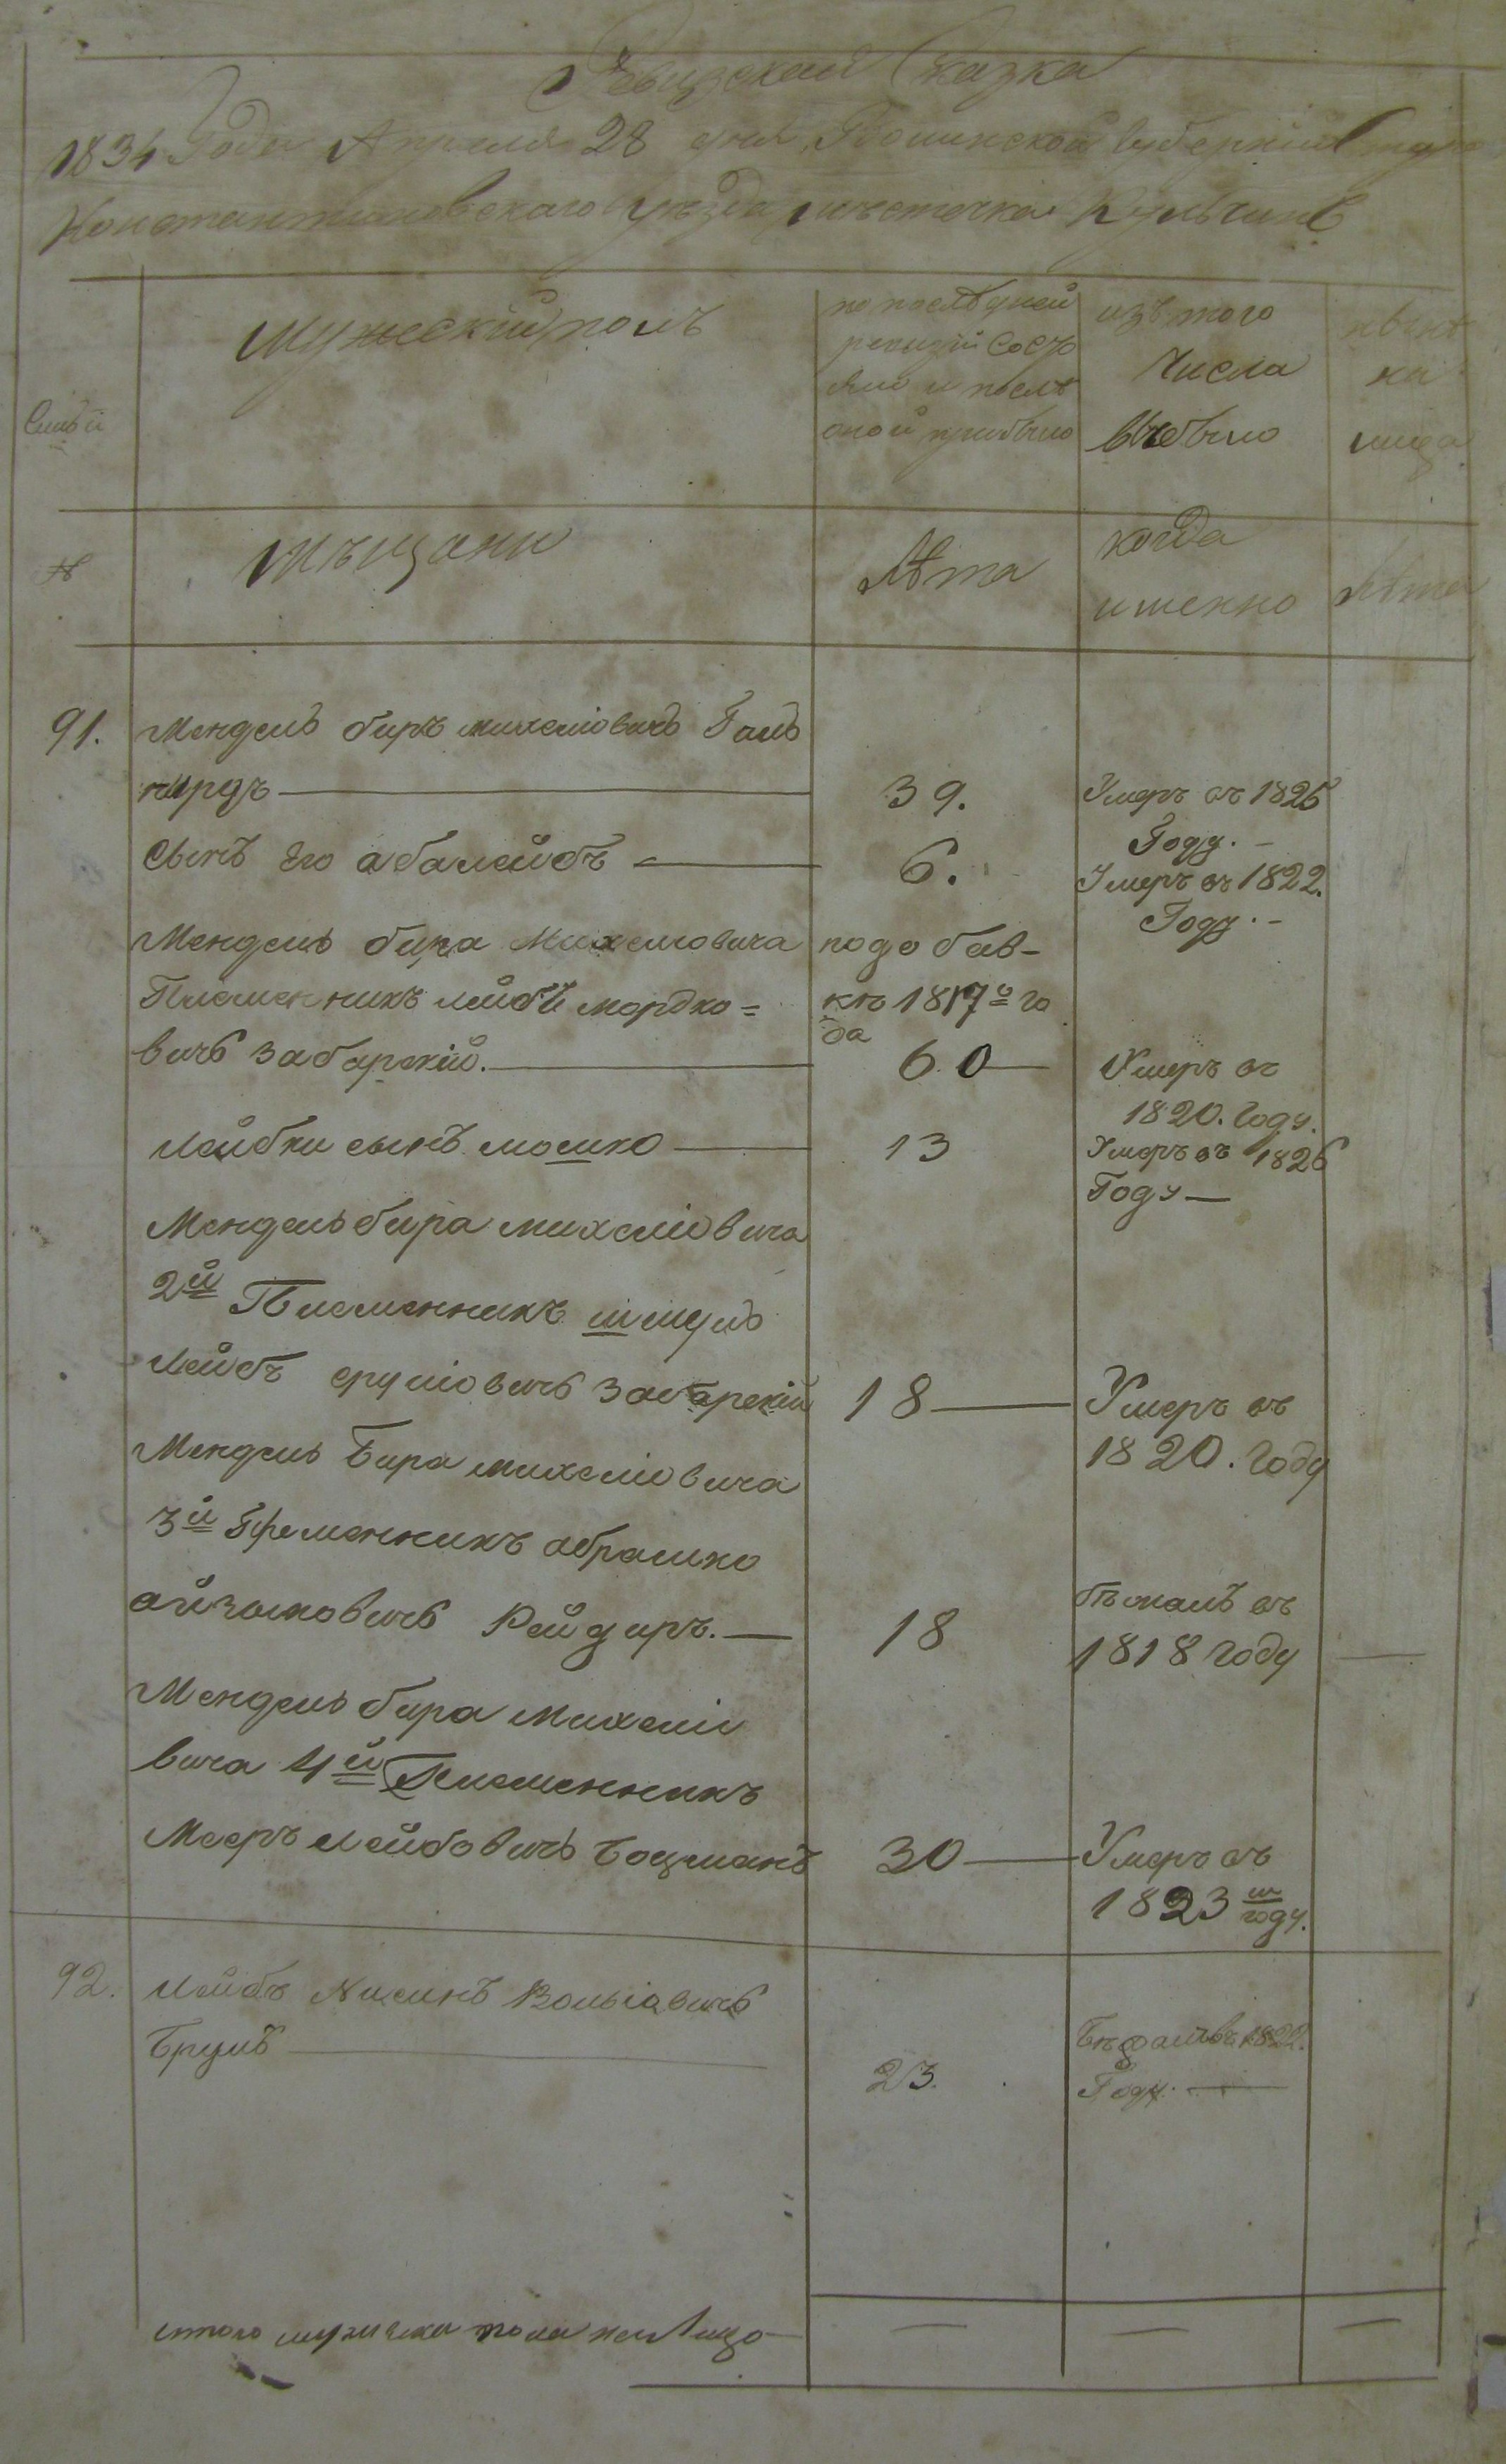 Ревизская Сказка
1834 Года Апреля 28 дня Волинской Губернии
Константиновского уезда местечка Кульчинъ
Мужеский полъ
по последней
ревизіи Состо
яло и послѣ
оной прибыло
изъ того
Числа
Выбыло
нынѣ
на
лицо
Семьи
№
Мѣщани
Лѣта
когда
именно
Лѣта
91.
Мендель биръ михеліовичъ Галь
пирдъ
39.
Умеръ въ 1825
Году. -
Сынъ Его абалейбъ
6.
Умеръ въ 1822.
Году. -
Мендель бира Михелiовича
Племенникъ лейбъ мордко=
вичъ Забарскій.
подобав-
кѣ 1817го го
да
60
Умеръ въ
1820. году.
Лейбки сынъ мошко
13
Умеръ въ 1826
Году
Мендель бира михеліовича
2й Племенникъ шмуль
Лейбъ сруліовичъ Забарскій
18
Умеръ въ
1820. году
Мендель Бира михеліовича
3й Племенникъ абрамко
айзыковичъ Рейдиръ.
18
бѣжалъ въ
1818 году
Мендель бира Михелiо
вича 4й Племенникъ
Мееръ Лейбовичъ Боцманъ
30
Умеръ въ
1823м году.
92.
Лейбъ Нисинъ Вольіовичъ
Брумъ
23.
Бежалъ въ 1822.
Году.
итого мужеска пола на Лицо